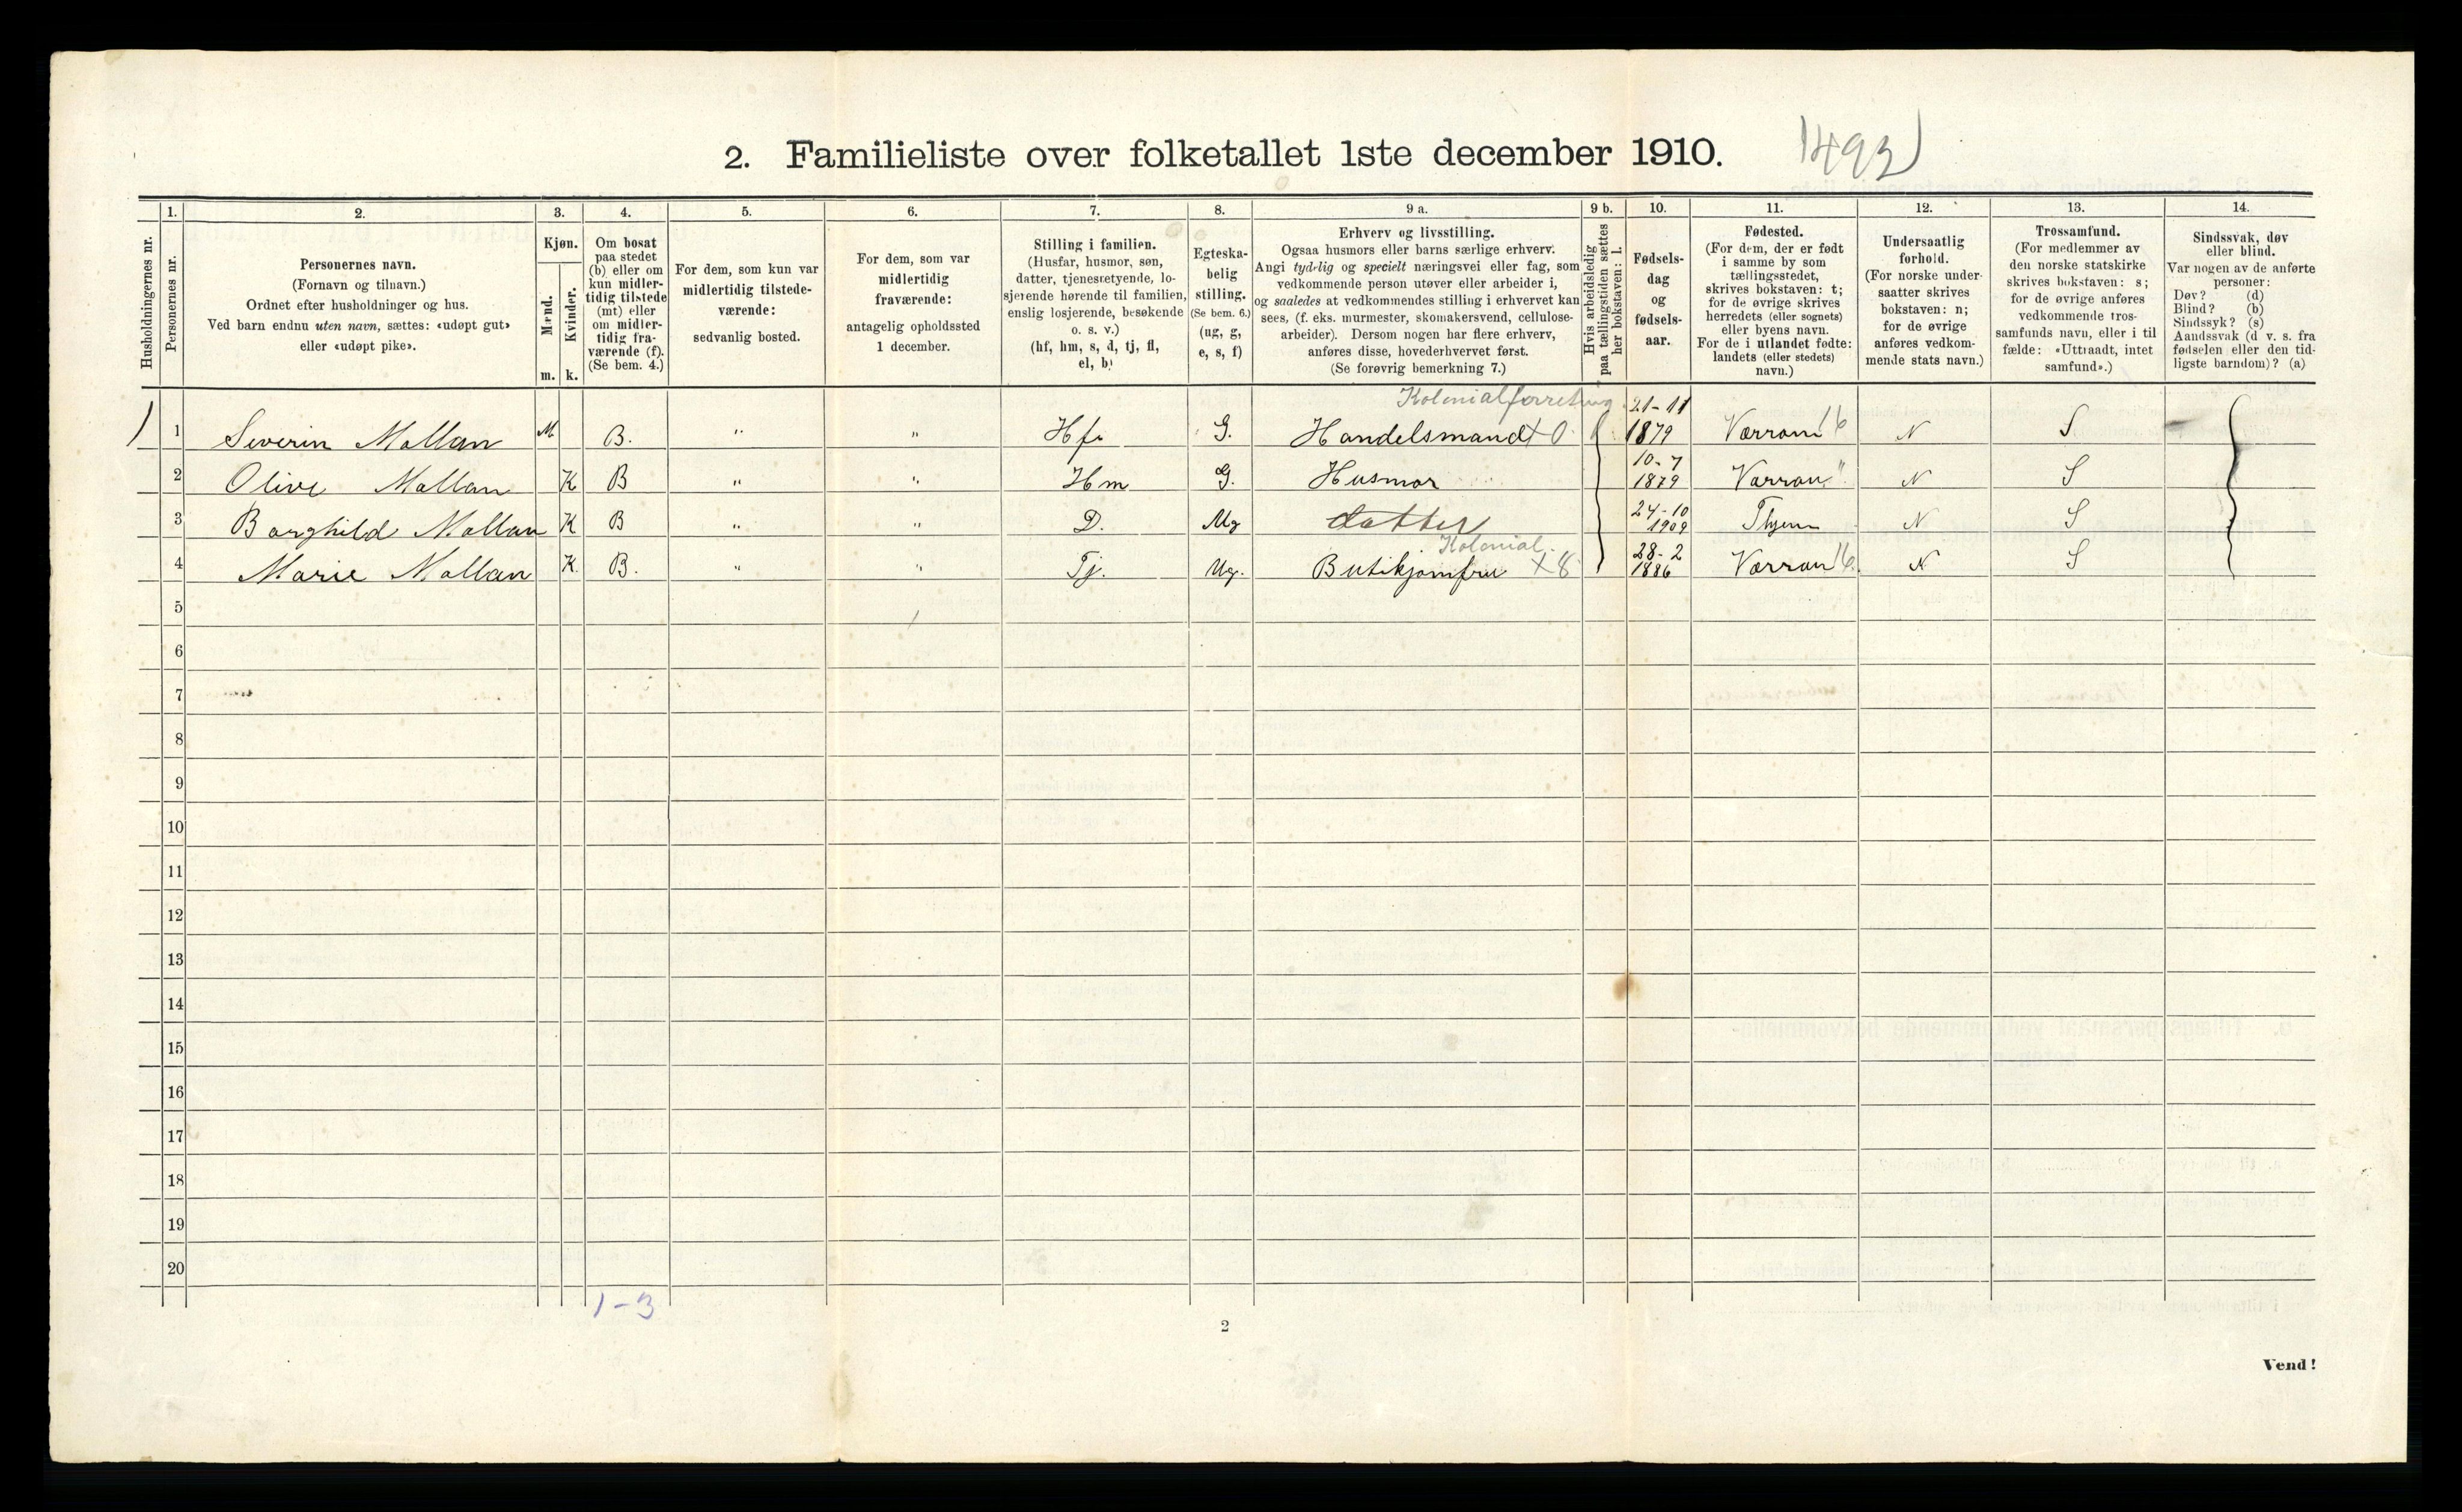 2. Familieliste over folketallet 1ste december 1910.
1493
Husholdningernes nr.
1.
Personernes nr.
2.
Personernes navn.
(Fornavn og tilnavn.)
Ordnet efter husholdninger og hus.
Ved barn endnu uten navn, sættes: «udøpt gut»
eller «udøpt pike».
3.
Kjøn.
Mænd.
Kvinder.
m. k.
4.
Om bosat
paa stedet
(b) eller om
kun midler-
tidig tilstede
(mt) eller
om midler-
tidig fra-
værende (f).
(Se bem. 4.)
5.
For dem, som kun var
midlertidig tilstede-
værende:
sedvanlig bosted.
6.
For dem, som var
midlertidig
fraværende:
antagelig opholdssted
1 december.
7.
Stilling i familien.
(Husfar, husmor, søn,
datter, tjenestetyende, lo-
sjerende hørende til familien,
enslig losjerende, besøkende
o. s. v.)
(hf, hm, s, d, tj, fl,
el, b)
8.
Egteska-
belig
stilling.
(Se bem. 6.)
(ug, g,
e, s, f)
9 a.
Erhverv og livsstilling.
Ogsaa husmors eller barns særlige erhverv.
Angi tydelig og specielt næringsvei eller fag, som
vedkommende person utøver eller arbeider i,
og saaledes at vedkommendes stilling i erhvervet kan
sees, (f. eks. murmester, skomakersvend, cellulose-
arbeider). Dersom nogen har flere erhverv,
anføres disse, hovederhvervet først.
(Se forøvrig bemerkning 7.)
9 b.
Hvis arbeidsledig
paa tællingstiden sættes
her bokstaven: l.
10.
Fødsels-
dag
og
fødsels-
aar.
11.
Fødested.
(For dem, der er født
i samme by som
tællingsstedet,
skrives bokstaven: t;
for de øvrige skrives
herredets (eller sognets)
eller byens navn.
For de i utlandet fødte:
landets (eller stedets)
navn.)
12.
Undersaatlig
forhold.
(For norske under-
saatter skrives
bokstaven: n;
for de øvrige
anføres vedkom-
mende stats navn.)
13.
Trossamfund.
(For medlemmer av
den norske statskirke
skrives bokstaven: s;
for de øvrige anføres
vedkommende tros-
samfunds navn, eller i til
fælde: «Uttraadt, intet
samfund».)
14.
Sindssvak, døv
eller blind.
Var nogen av de anførte
personer:
Døv? (d)
Blind? (b)
Sindssyk? (s)
Aandssvak (d v. s. fra
fødselen eller den tid-
ligste barndom)? (a)
Kolonialforretning 21-11
1 Severin Mollan M B. " " Hf. G. Handelsmand +0 1879 Værran 16 N S
10-7
2 Olive Mollan K B " " Hm G. Husmor 1879 Værran " N S
24-10
3 Borghild Mollan K B " " D. Ug datter 1909 Thjem N S
Kolonial. 28-2
4 Marie Mollan K. B. " " Tj. Ug. Butikjomfru +8 1886 Værran 16. N S
5
6
7
8
9
10
11
12
13
14
15
16
17
18
19
20
1-3
2
Vend!